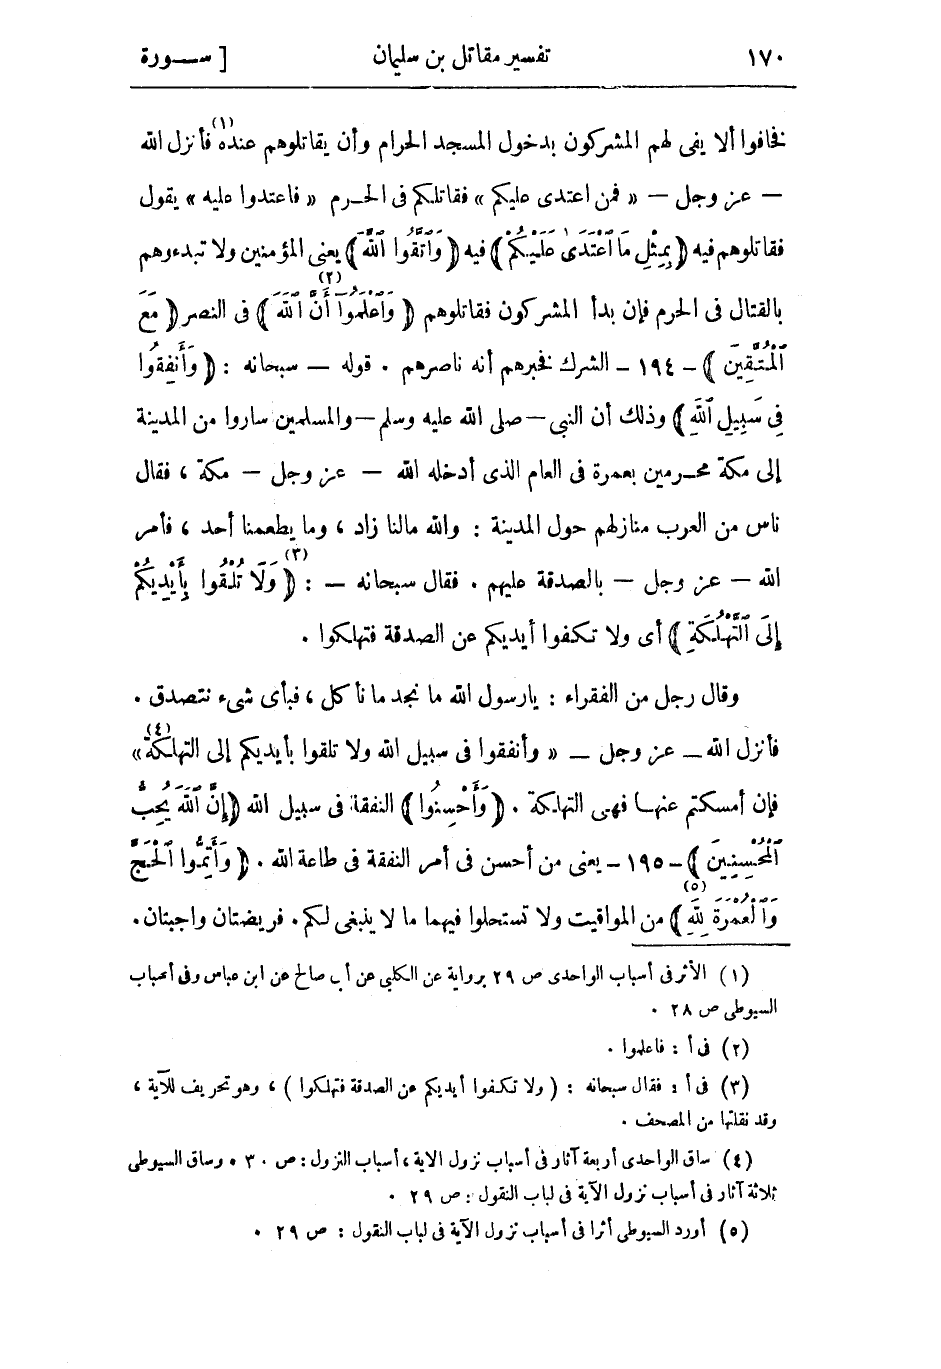 ١٧٠ تفسير مقاتل بن سليمان [ ســورة
فخافوا ألا يفى لهم المشركون بدخول المسجد الحرام وأن يقاتلوهم عنده(١) فأنزل الله
— عز وجل — « فمن اعتدى عليكم » فقاتلكم فى الحرم « فاعتدوا عليه » يقول
فقاتلوهم فيه ﴿ بِمِثْلِ مَا ٱعْتَدَىٰ عَلَيْكُمْ ﴾ فيه ﴿ وَٱتَّقُوا ٱللَّهَ ﴾ يعنى المؤمنين ولا تبدءوهم
بالقتال فى الحرم فإن بدأ المشركون فقاتلوهم ﴿ وَٱعْلَمُوٓا(٢) أَنَّ ٱللَّهَ ﴾ فى النصر ﴿ مَعَ
ٱلْمُتَّقِينَ ﴾ - ١٩٤ - الشرك فخبرهم أنه ناصرهم . قوله — سبحانه : ﴿ وَأَنفِقُوا
فِى سَبِيلِ ٱللَّهِ ﴾ وذلك أن النبى — صلى الله عليه وسلم — والمسلمين ساروا من المدينة
إلى مكة محرمين بعمرة فى العام الذى أدخله الله — عز وجل — مكة ، فقال
ناس من العرب منازلهم حول المدينة : والله مالنا زاد ، وما يطعمنا أحد ، فأمر
الله — عز وجل — بالصدقة عليهم . فقال سبحانه — : (٣)﴿ وَلَا تُلْقُوا بِأَيْدِيكُمْ
إِلَى ٱلتَّهْلُكَةِ ﴾ أى ولا تكفوا أيديكم عن الصدقة فتهلكوا .
وقال رجل من الفقراء : يارسول الله ما نجد ما نأكل ، فبأى شىء نتصدق .
فأنزل الله — عز وجل — « وأنفقوا فى سبيل الله ولا تلقوا بأيديكم إلى التهلكة(٤) »
فإن أمسكتم عنها فهى التهلكة . ﴿ وَأَحْسِنُوا ﴾ النفقة فى سبيل الله ﴿ إِنَّ ٱللَّهَ يُحِبُّ
ٱلْمُحْسِنِينَ ﴾ - ١٩٥ - يعنى من أحسن فى أمر النفقة فى طاعة الله . ﴿ وَأَتِمُّوا ٱلْحَجَّ
وَٱلْعُمْرَةَ لِلَّهِ(٥) ﴾ من المواقيت ولا تستحلوا فيهما ما لا ينبغى لكم . فريضتان واجبتان .
(١) الأثر فى أسباب الواحدى ص ٢٩ برواية عن الكلبى عن أبى صالح عن ابن عباس وفى أسباب
السيوطى ص ٢٨ .
(٢) فى أ : فاعلموا .
(٣) فى أ : فقال سبحانه : ( ولا تكفوا أيديكم عن الصدقة فتهلكوا ) ، وهو تحريف للآية ،
وقد نقلتها من المصحف .
(٤) ساق الواحدى أربعة آثار فى أسباب نزول الاية ، أسباب النزول : ص ٣٠ . وساق السيوطى
ثلاثة آثار فى أسباب نزول الآية فى لباب النقول : ص ٢٩ .
(٥) أورد السيوطى أثرا فى أسباب نزول الآية فى لباب النقول : ص ٢٩ .